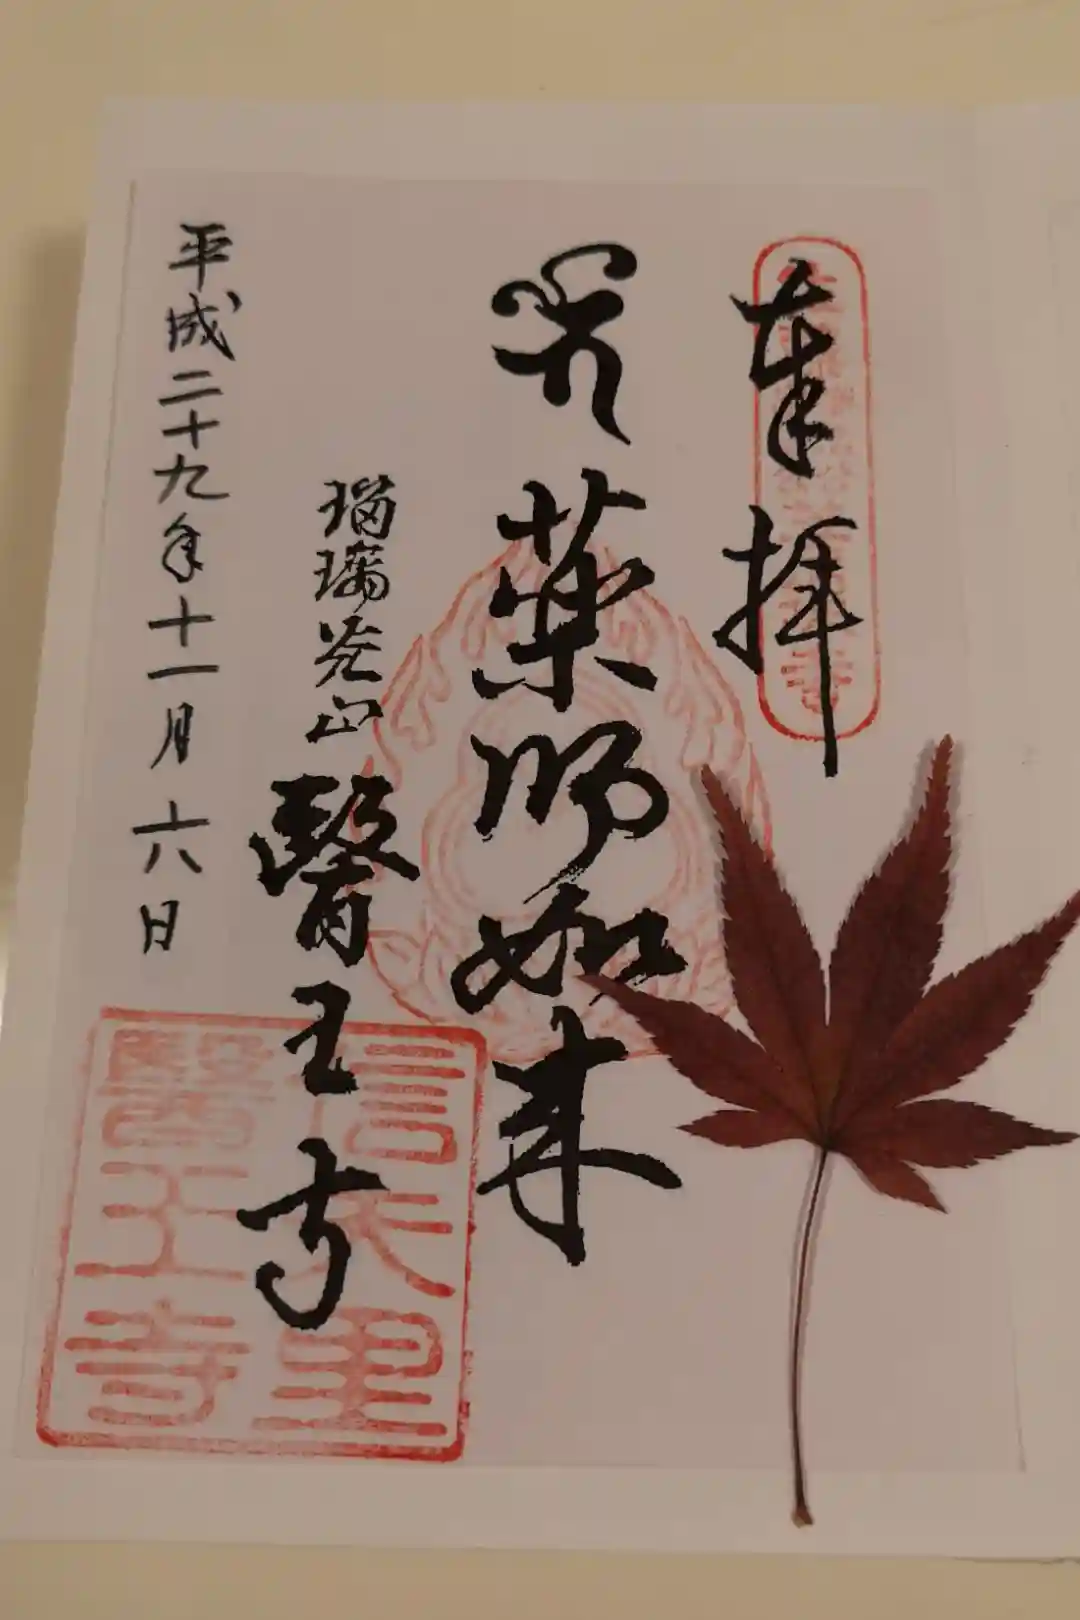 奉拝
薬師如来
瑠璃光山
醫王寺
平成二十九年十一月六日
信夫里
醫王寺